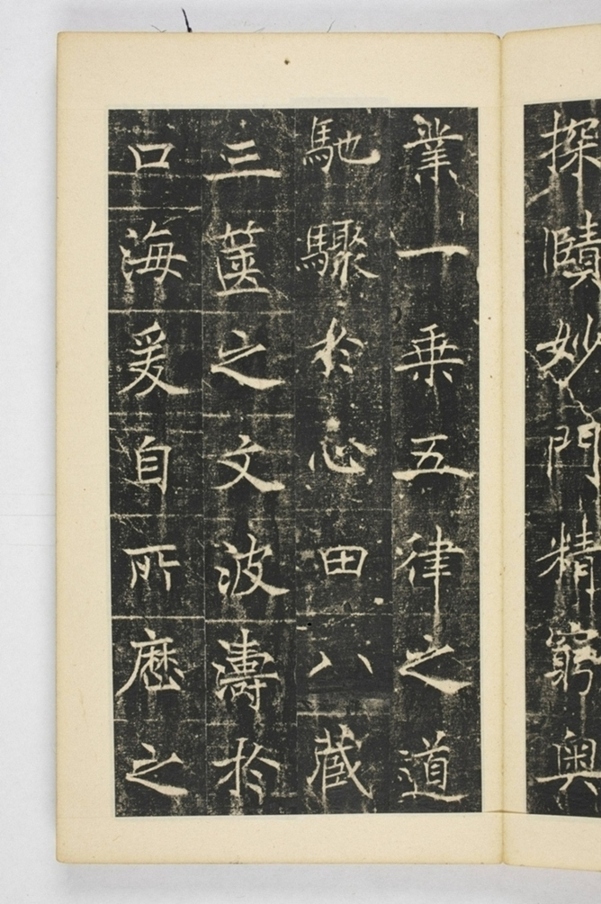 探賾妙門精窮奧
業一乗五律之道
馳驟於心田八蔵
三篋之文波濤於
口海爰自所歷之